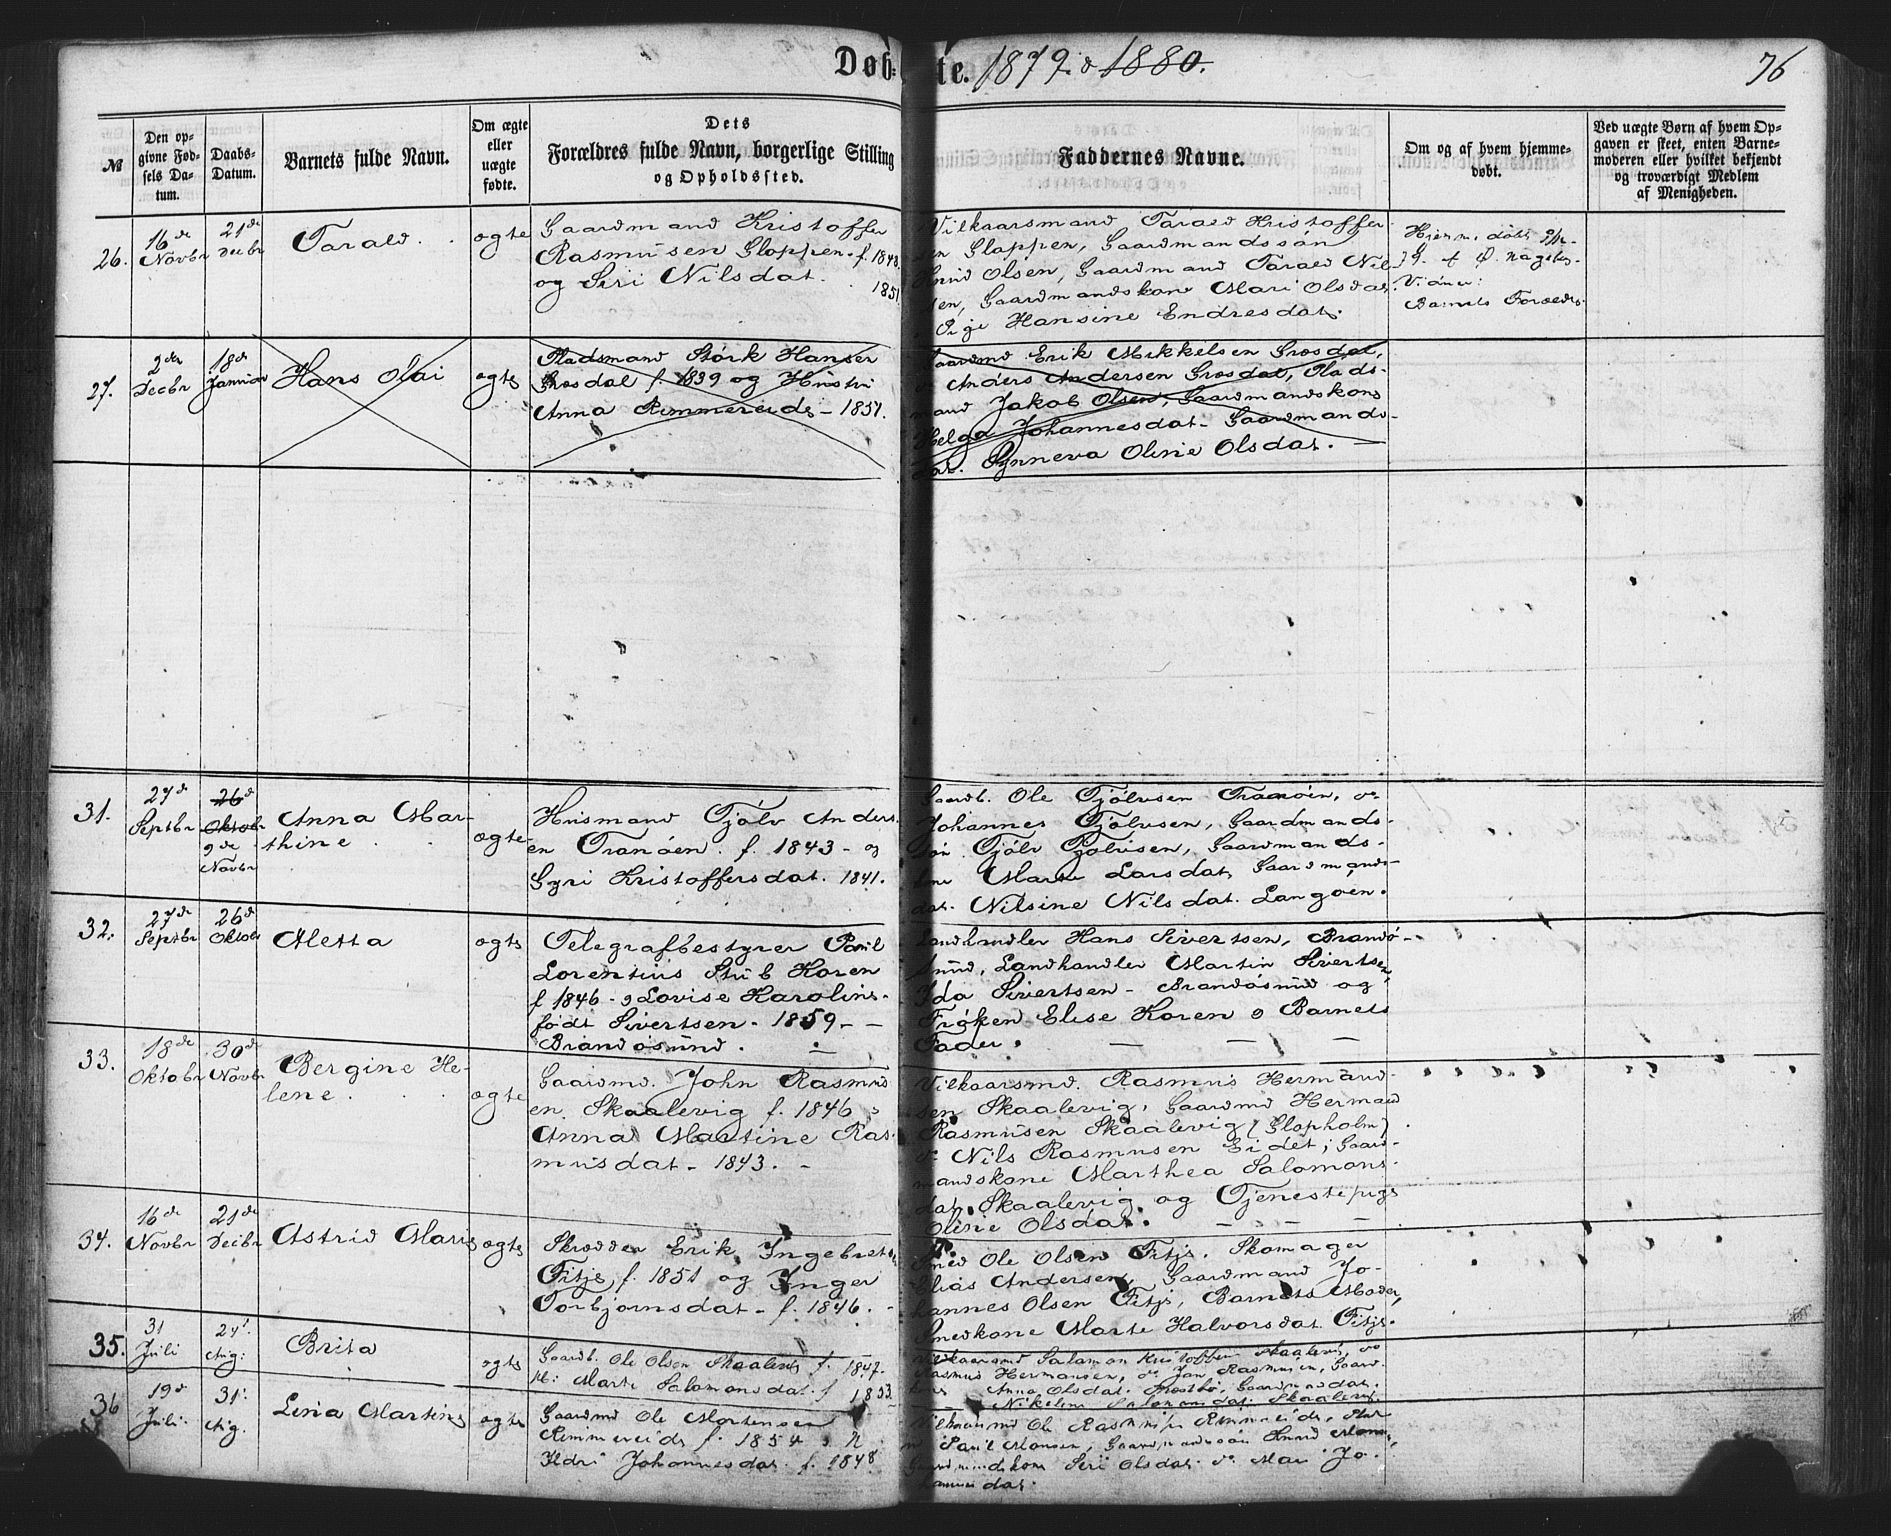 Døbte. 1879. & 1880. 76
№
Den opgivne Fødsels Datum.
Daabs-Datum.
Barnets fulde Navn.
Om ægte eller uægte fødte.
Dets Forældres fulde Navn, borgerlige Stilling og Opholdssted.
Faddernes Navne.
Om og af hvem hjemmedøbt.
Ved uægte Børn af hvem Opgaven er skeet, enten Barnemoderen eller hvilket bekjendt og troværdigt Medlem af Menigheden.
26.
16de Novbr
21de Decbr
Tarald.
ægte
Gaardmand Kristoffer
Rasmusen Gloppen. f. 1848.
og Siri Nilsdat. 1851
Vilkaarsmand Tarald Kristoffer
sen Gloppen, Gaardmandssøn
Knud Olsen, Gaardmand Tarald Nil
sen, Gaardmandskone Mari Olsdat.
Pige Hansine Endresdat.
Hjem. døbt
Vidner:
Barnets Foræedre
27.
2den Decbr
18de Januar
Hans Olai
ægte
Pladsmand Størk Hansen
Grøsdal f. 1839 og Hustru
Anna Rimmereide - 1851.
Gaardmd Erik Mikkelsen Grøsdal,
Anders Andersen Grøsdal, Plads-
mand Jakob Olsen, Gaardmandskone
Helga Johannesdat. Gaardmands-
dat. Synneva Oline Olsdat.
31.
27de Septbr
26de Oktobr
9de Novbr
Anna Mar-
thine
ægte
Husmand Tjølv Anders
en Tranøen. f. 1843 - og
Gyri Kristoffersdat. 1841.
Gaardb. Ole Tjølvsen Tranøen, do
Johannes Tjølvsen, Gaardmands-
søn. Tjølv Tjølvsen, Gaardmands-
Marte Larsdat, Gaardmands-
dat. Nilsine Nilsdat. Langøen.
32.
27de Septbr
26de Oktobr
Aletta
ægte
Telegrafbestyrer Paul
Lorentius Stub Koren
f 1846 - & Lovise Karoline
født Sivertsen. 1859 - -
Brandøsund.
Landhandler Hans Sivertsen, Brandø-
sund, Landhandler Martin Sivertsen,
Ida Sivertsen - Brandøsund og
Frøken Elise Koren & Barnets
Fader.
33.
18de Oktobr
30de Novbr
Bergine He-
lene.
ægte
Gaardmd. John Rasmus
en Skaalevig f. 1846 &
Anna Martine Ras-
musdat - 1843. -
Vilkaarsmd. Rasmus Hermand-
sen Skaalevig, Gaardmd Hermand
Rasmusen Skaalevig (Glopholm)
do Nils Rasmusen Eidet, Gaard-
mandskone Marthea Salomons-
dat. Skaalevig og Tjenestepige
Oline Olsdat.
34.
16de Novbr
21de Decbr
Astrid Marie
ægte
Skrædder Erik Ingebretsen
Fitje, f. 1851 og Inger
Torbjørnsdat - f. 1846. -
Smed Ole Olsen Fitje. Skomager
Elias Andersen, Gaardmand Jo-
hannes Olsen Fitje, Barnets Moder,
Smedkone Marte Halvorsdat. Fitje.
35.
31 Juli
24. Aug:
Brita
ægte
Gaardb. Ole Olsen Skaalevig f. 1847.
H: Marte Salomonsdat. f 1853
Vilkaarsmd Salamon Kristoffers. Skaalevig, do
Rasmus Hermansen, do Jan Rasmusen, Gaard-
kone Anna Olsdat. Gaardmandsdat.
Nikeline Salomonsdat. Skaalevig.
36
19de Juli.
31. Aug.
Lena Martine
ægte
Gaardmd Ole Mortensen
Rimmereide f. 1854 & H
Ildri Johannesdat. f. 1848
Vilkaarsmd Ole Rasmusen Rimmereide,
Paul Monsen, Gaardmandssøn Knud
Gaardmandskone Siri Olsdat. do Mari Jo-
hannesdat.